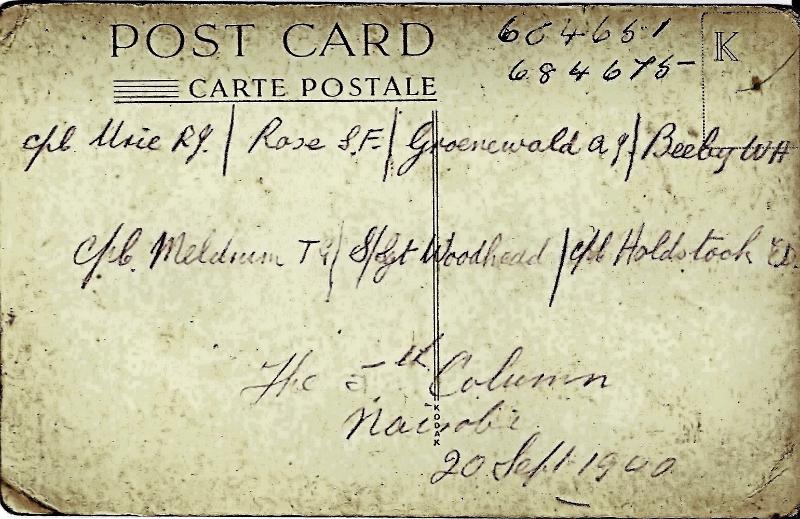 POST CARD
CARTE POSTALE
K
604651
684675
Cpl Urie R.J. / Rose S.F. / Groenewald A J / Beeby WH
Cpl. Meldrum T G / S/Sgt Woodhead / Cpl Holdstock ED.
The 5th Column
Nairobi
20 Sept 1940
KODAK